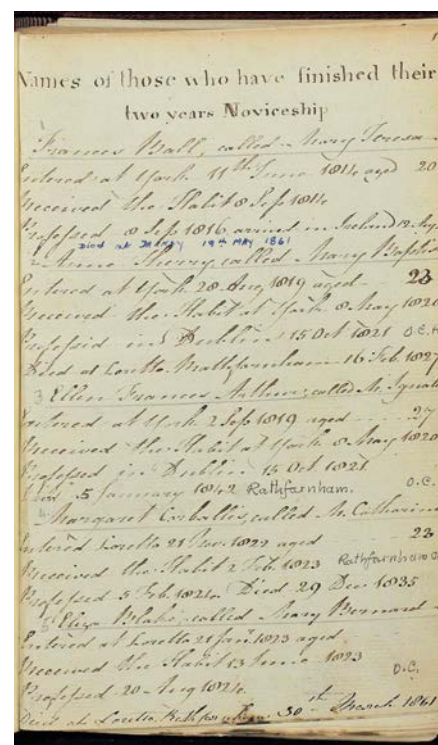 Names of those who have finished their
two years Noviceship
Frances Ball, called Mary Teresa
Entered at York 11th June 1814 aged 20
Received the Habit 8 Sep 1814
Professed 8 Sep 1816 arrived in Ireland 12 Aug
Died at Dalkey 19th May 1861
Anne Sherry, called Mary Baptis
Entered at York 28 Aug 1819 aged 23
Received the Habit at York 8 May 1820
Professed in Dublin 15 Oct 1821 O.C.
Died at Loretto Rathfarnham 16 Feb. 1827
3 Ellen Frances Arthur, called M. Ignati
Entered at York 2 Sep 1819 aged 27
Received the Habit at York 8 May 1820
Professed in Dublin 15 Oct 1821
5 January 1842 Rathfarnham. O.C.
4 Margaret Corballis, called M. Catharin
Entered Loretto 21 Nov. 1822 aged 23
Received the Habit 2 Feb. 1823 Rathfarnham O
Professed 5 Feb. 1824. Died 29 Dec 1835
5 Eliza Blake, called Mary Bernard
Entered at Loretto 21 Jan. 1823 aged
Received the Habit 13 June 1823
Professed 20 Aug 1824. O.C.
Died at Loretto Rathfarnham 30th March 1861